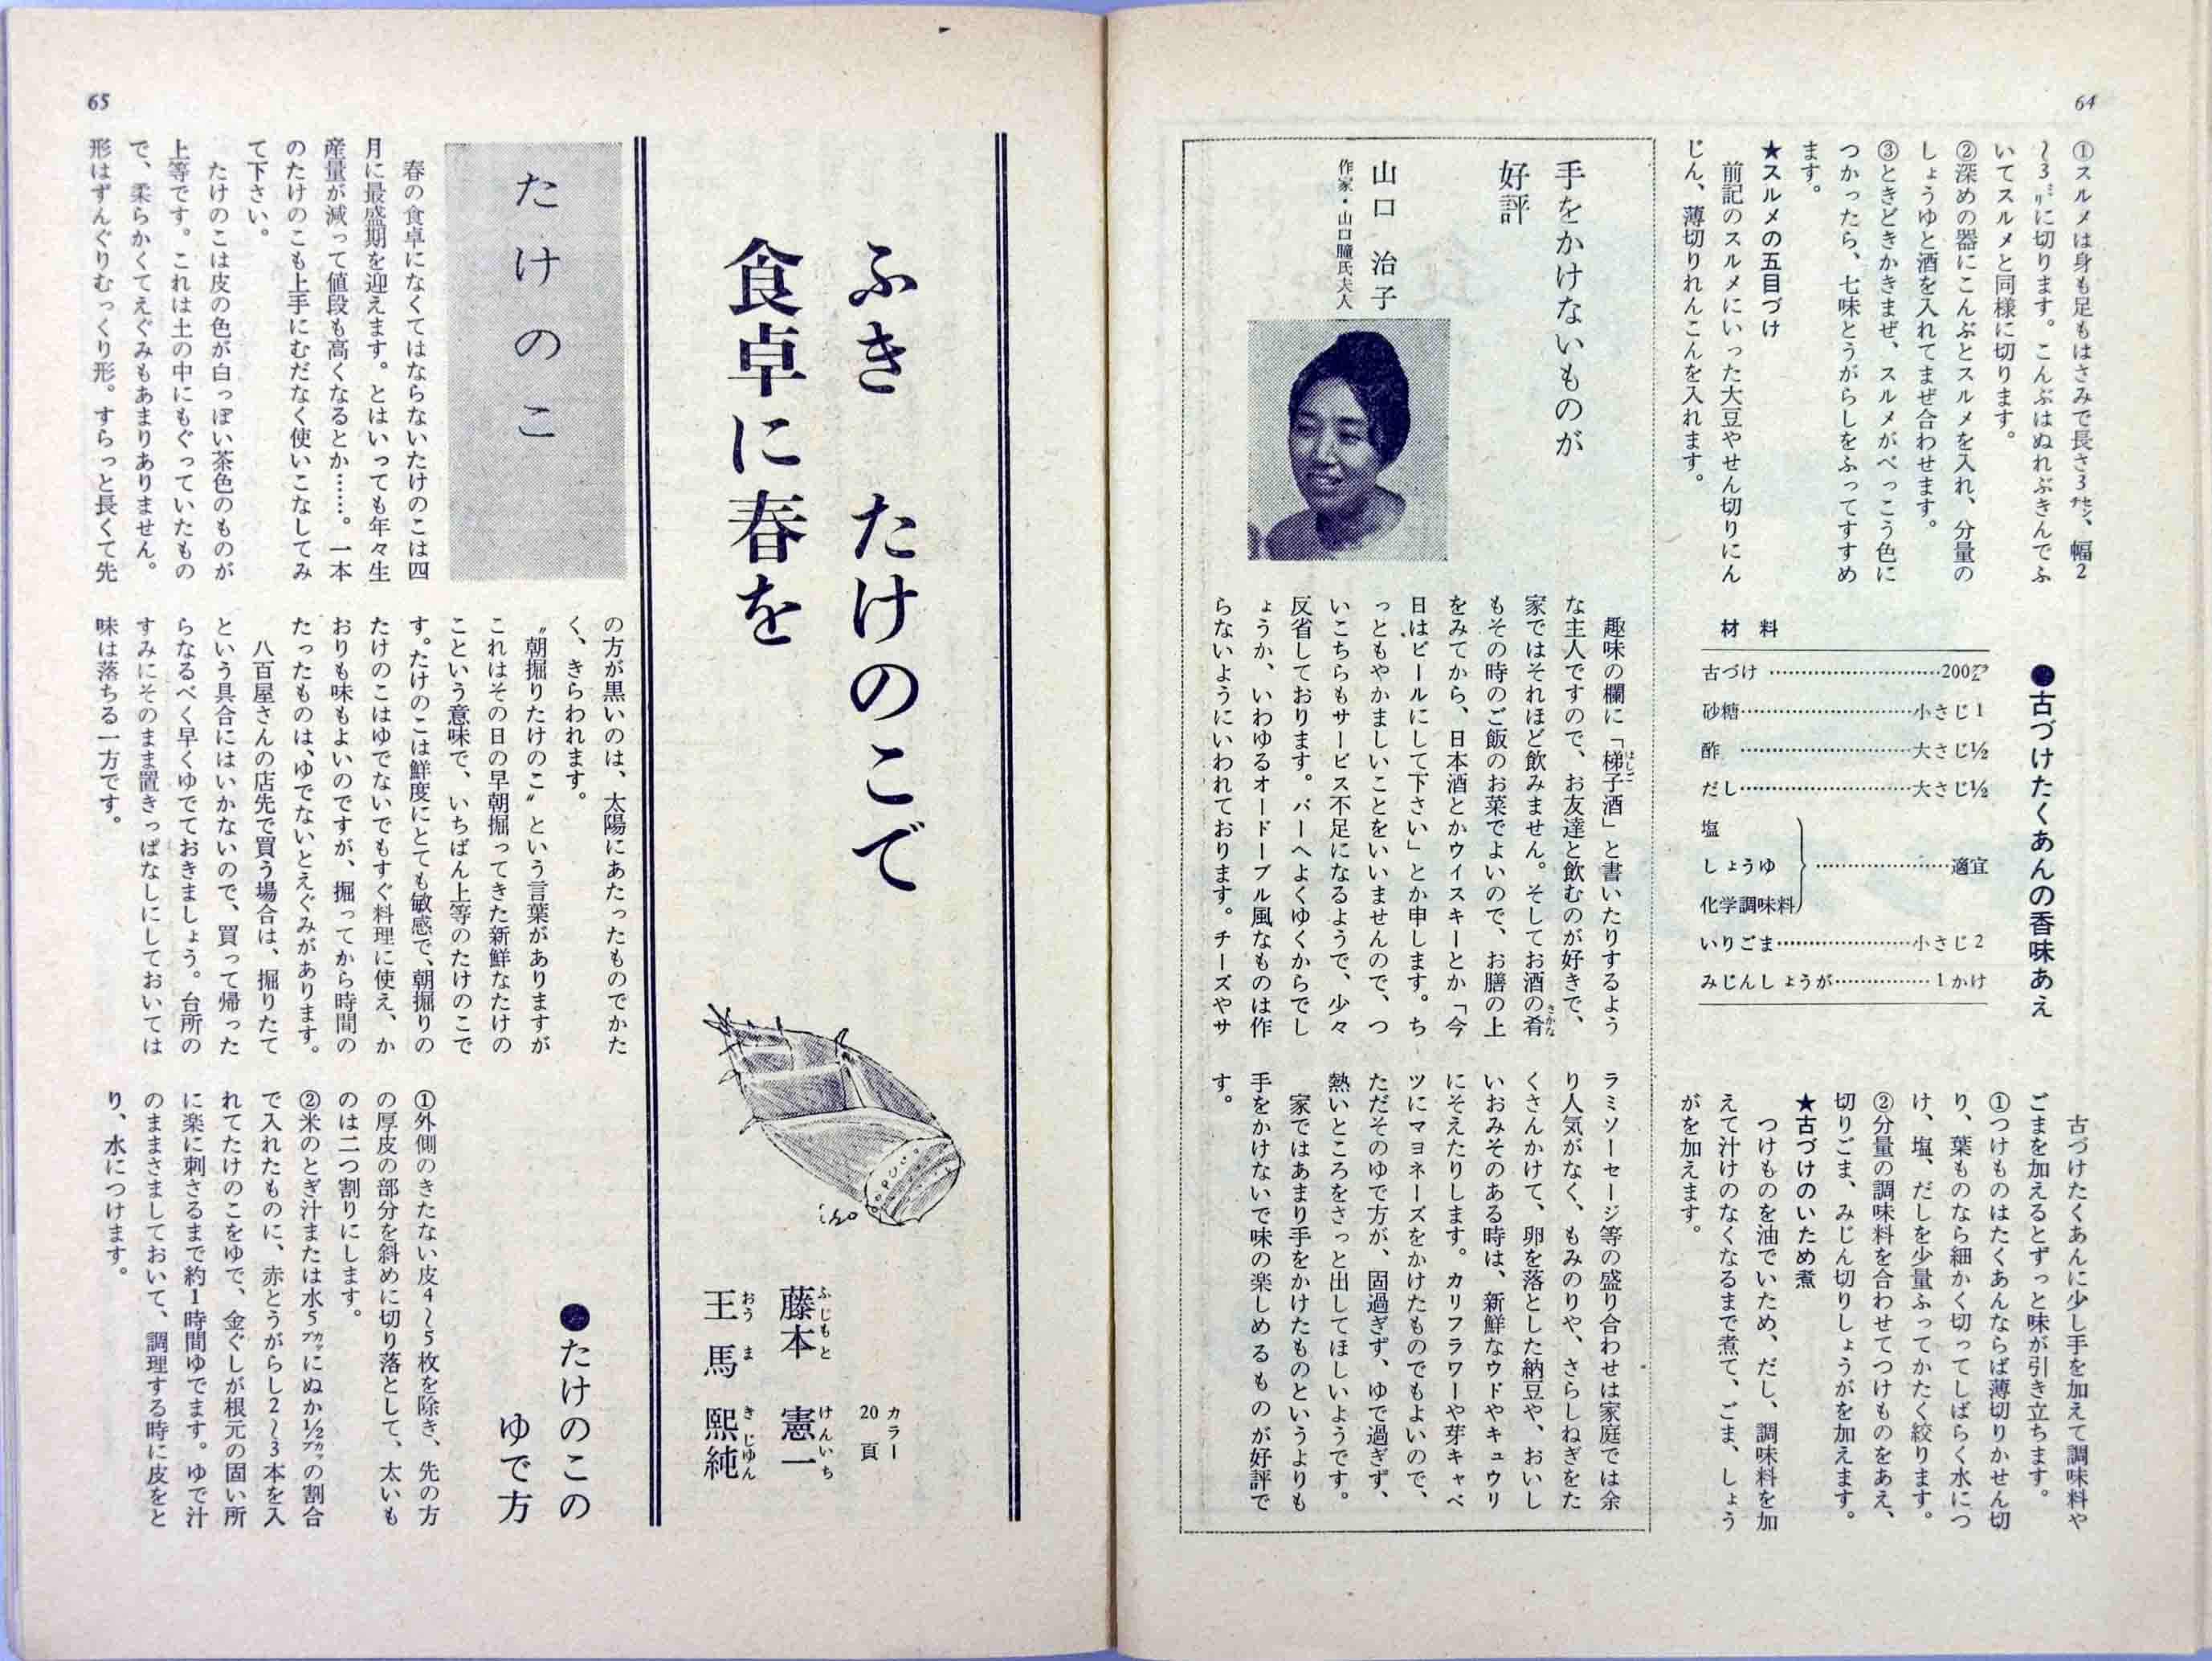 64
①スルメは身も足もはさみで長さ3センチ、幅2
〜3ミリに切ります。こんぶはぬれぶきんでふ
いてスルメと同様に切ります。
②深めの器にこんぶとスルメを入れ、分量の
しょうゆと酒を入れてまぜ合わせます。
③ときどきかきまぜ、スルメがべっこう色に
つかったら、七味とうがらしをふってすすめ
ます。
★スルメの五目づけ
前記のスルメにいった大豆やせん切りにん
じん、薄切りれんこんを入れます。
●古づけたくあんの香味あえ
材料
古づけ…………………200グラム
砂糖…………………小さじ1
酢…………………大さじ½
だし…………………大さじ½
塩
しょうゆ
化学調味料
…………………適宜
いりごま…………………小さじ2
みじんしょうが…………………1かけ
古づけたくあんに少し手を加えて調味料や
ごまを加えるとずっと味が引き立ちます。
①つけものはたくあんならば薄切りかせん切
り、葉ものなら細かく切ってしばらく水につ
け、塩、だしを少量ふってかたく絞ります。
②分量の調味料を合わせてつけものをあえ、
切りごま、みじん切りしょうがを加えます。
★古づけのいため煮
つけものを油でいため、だし、調味料を加
えて汁けのなくなるまで煮て、ごま、しょう
がを加えます。
手をかけないものが
好評
山口 治子
作家・山口瞳氏夫人
趣味の欄に「梯子酒」と書いたりするよう
はしご
な主人ですので、お友達と飲むのが好きで、
家ではそれほど飲みません。そしてお酒の肴
さかな
もその時のご飯のお菜でよいので、お膳の上
をみてから、日本酒とかウイスキーとか「今
日はビールにして下さい」とか申します。ち
っともやかましいことをいいませんので、つ
いこちらもサービス不足になるようで、少々
反省しております。バーへよくゆくからでし
ょうか、いわゆるオードーブル風なものは作
らないようにいわれております。チーズやサ
ラミソーセージ等の盛り合わせは家庭では余
り人気がなく、もみのりや、さらしねぎをた
くさんかけて、卵を落とした納豆や、おいし
いおみそのある時は、新鮮なウドやキュウリ
にそえたりします。カリフラワーや芽キャベ
ツにマヨネーズをかけたものでもよいので、
ただそのゆで方が、固過ぎず、ゆで過ぎず、
熱いところをさっと出してほしいようです。
家ではあまり手をかけたものというよりも
手をかけないで味の楽しめるものが好評で
す。
65
ふき たけのこで
食卓に春を
iso
カラー
20頁
藤本 憲一
ふじもと けんいち
王馬 煕純
おう ま き じゆん
たけのこ
春の食卓になくてはならないたけのこは四
月に最盛期を迎えます。とはいっても年々生
産量が減って値段も高くなるとか……。一本
のたけのこも上手にむだなく使いこなしてみ
て下さい。
たけのこは皮の色が白っぽい茶色のものが
上等です。これは土の中にもぐっていたもの
で、柔らかくてえぐみもあまりありません。
形はずんぐりむっくり形。すらっと長くて先
の方が黒いのは、太陽にあたったものでかた
く、きらわれます。
〝朝掘りたけのこ〟という言葉がありますが
これはその日の早朝掘ってきた新鮮なたけの
こという意味で、いちばん上等のたけのこで
す。たけのこは鮮度にとても敏感で、朝掘りの
たけのこはゆでないでもすぐ料理に使え、か
おりも味もよいのですが、掘ってから時間の
たったものは、ゆでないとえぐみがあります。
八百屋さんの店先で買う場合は、掘りたて
という具合にはいかないので、買って帰った
らなるべく早くゆでておきましょう。台所の
すみにそのまま置きっぱなしにしておいては
味は落ちる一方です。
●たけのこの
ゆで方
①外側のきたない皮4〜5枚を除き、先の方
の厚皮の部分を斜めに切り落として、太いも
のは二つ割りにします。
②米のとぎ汁または水5カップにぬか½カップの割合
で入れたものに、赤とうがらし2〜3本を入
れてたけのこをゆで、金ぐしが根元の固い所
に楽に刺さるまで約1時間ゆでます。ゆで汁
のままさましておいて、調理する時に皮をと
り、水につけます。